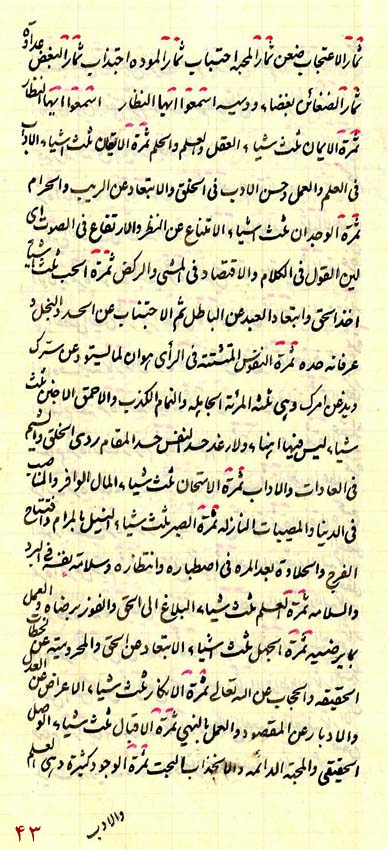 ثمار الاعتجاب ضعن ثمار المحبه احتساب ثمار الموده اجتذاب ثمار البغض عداوة
ثمار الضغائن بغضاء استمعوا ايها النظار استمعوا ايها النظار
ثمرة الايمان ثلث شياء العقل والعلم والحلم ثمرة الايقان ثلث اشياء الادب
فى العلم والعمل وحسن الادب فى الخلق والابتعاد عن الريب والحرام
ثمرة الوجدان ثلث شياء الامتناع عن النظر والارتفاع فى الصوت اى
لين القول فى الكلام والاقتصاد فى المشى والركض ثمرة الحب ثلث اشياء
اخذ الحق وابتعاد العبد عن الباطل ثم الاجتناب عن الحسد والبخل
عرفانه حده ثمرة النفوس المتشتتة فى الرأى هوان
عن امرك وهى ثلثه المرئة الجاهله والنمام الكذب والاحمق
شياء ليس فيها حد النفس حد المقام ردى الخلق
فى العادات والاداب ثمرة الامتحان ثلث شياء المال الوافر والمناصب
فى الدنيا والمصيبات النازله ثمرة الصبر ثلث شياء النيل بالمرام وافتتاح
الفرج والحلاوة بعد المره فى اصطباره وانتظاره وسلامة نفسه
والسلامه ثمرة العلم ثلث شياء البلاغ الى الحق والفوز برضاه والعمل
بما يرضيه ثمرة الجهل ثلث اشياء الابتعاد عن الحق والمحروميه عن
الحقيقه والحجاب عن الله تعالى ثمرة الانكار ثلث شياء الاعراض عن العدل
والادبار عن المقصود والعمل بالنهى ثمرة الاقبال ثلث شياء الوصل
الحقيقى والمحبة الدائمه والانجذاب البحت ثمرة الوجود كثيرة وهى العلم
والادب
٤٣